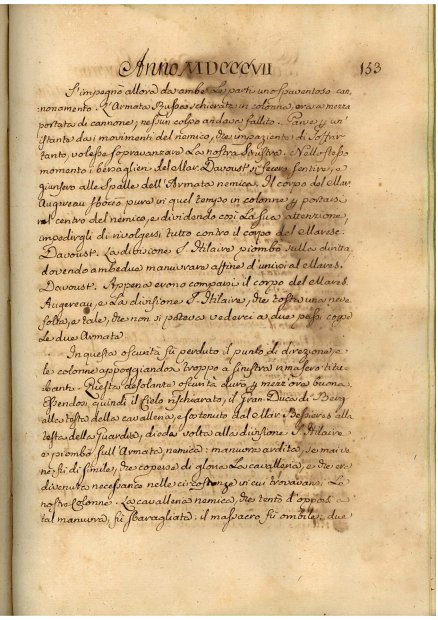 Anno MDCCCVII 153
S'impegnò allora da ambe Le parti uno spaventoso can,
nonamento. L'Armata Russa schierata in colonna, era a mezza
portata di cannone; ne pur un colpo andava fallito. Parve, un'
istante dai movimenti del nemico, che impaziente di soffrir
tanto, volesse sopravanzare La nostra Sinistra. Nello stesso
momento i bersaglieri del Mar. Davoust si fecero sentire, e
giunsero alle Spalle dell'Armata nemica. Il corpo del Mar.
Augereau sboccò pure in quel tempo in colonne, per portarsi
nel centro del nemico, e dividendo così La sua attenzione,
impedirgli di rivolgersi tutto contro il corpo del Maresc.
Davoust. La divisione S. Hilaire piombò sulla diritta
dovendo ambedue manuvrare affine d'unirsi al Mares.
Davoust. Appena erono comparsi il corpo del Mares.
Augereau, e La divisione S. Hilaire, che tosto una neve
folta, e tale, che non si poteva vederci a due passi, coprì
Le due Armata.
In questa oscurità fù perduto il punto di direzione, e
le colonne appoggiandosi troppo a sinistra rimasero titu,
banti. Questa desolante oscurità durò mezz'ora buona.
Essendosi quindi il Cielo rischiarato, il Gran-Duca di Berg
alla testa della cavalleria, e sostenuto dal Mar. Bessieres alla
testa della Guardia, diede volta alla divisione S. Hilaire
e piombò sull'Armata nemica: manuvra ardita, se mai ve
ne fù di simile, che coperse di gloria La cavalleria, e che era
divenuta necessaria nelle circostanze in cui trovavansi Le
nostre Colonne. La cavalleria nemica, che tentò d'opporsi a
tal manuvra, fù sbaragliata: il massacro fù orribile; due